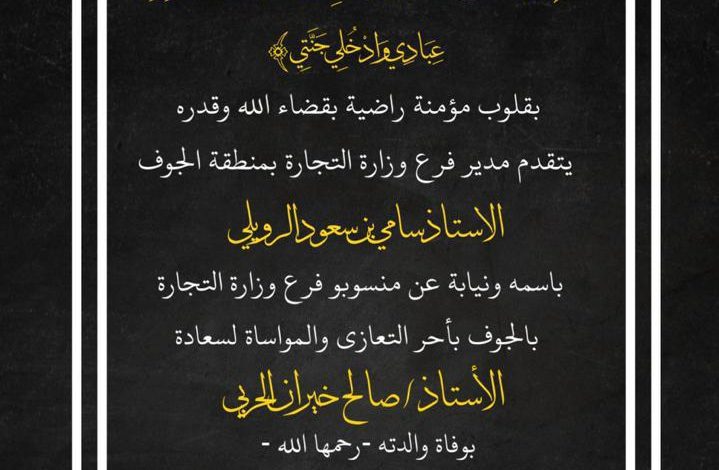 عِبَادِي وَادْخُلِي جَنَّتِي ﴾
بقلوب مؤمنة راضية بقضاء الله وقدره
يتقدم مدير فرع وزارة التجارة بمنطقة الجوف
الاستاذ سامي بن سعود الرويلي
باسمه ونيابة عن منسوبو فرع وزارة التجارة
بالجوف بأحر التعازى والمواساة لسعادة
الأستاذ / صالح خيران الحربي
بوفاة والدته -رحمها الله -